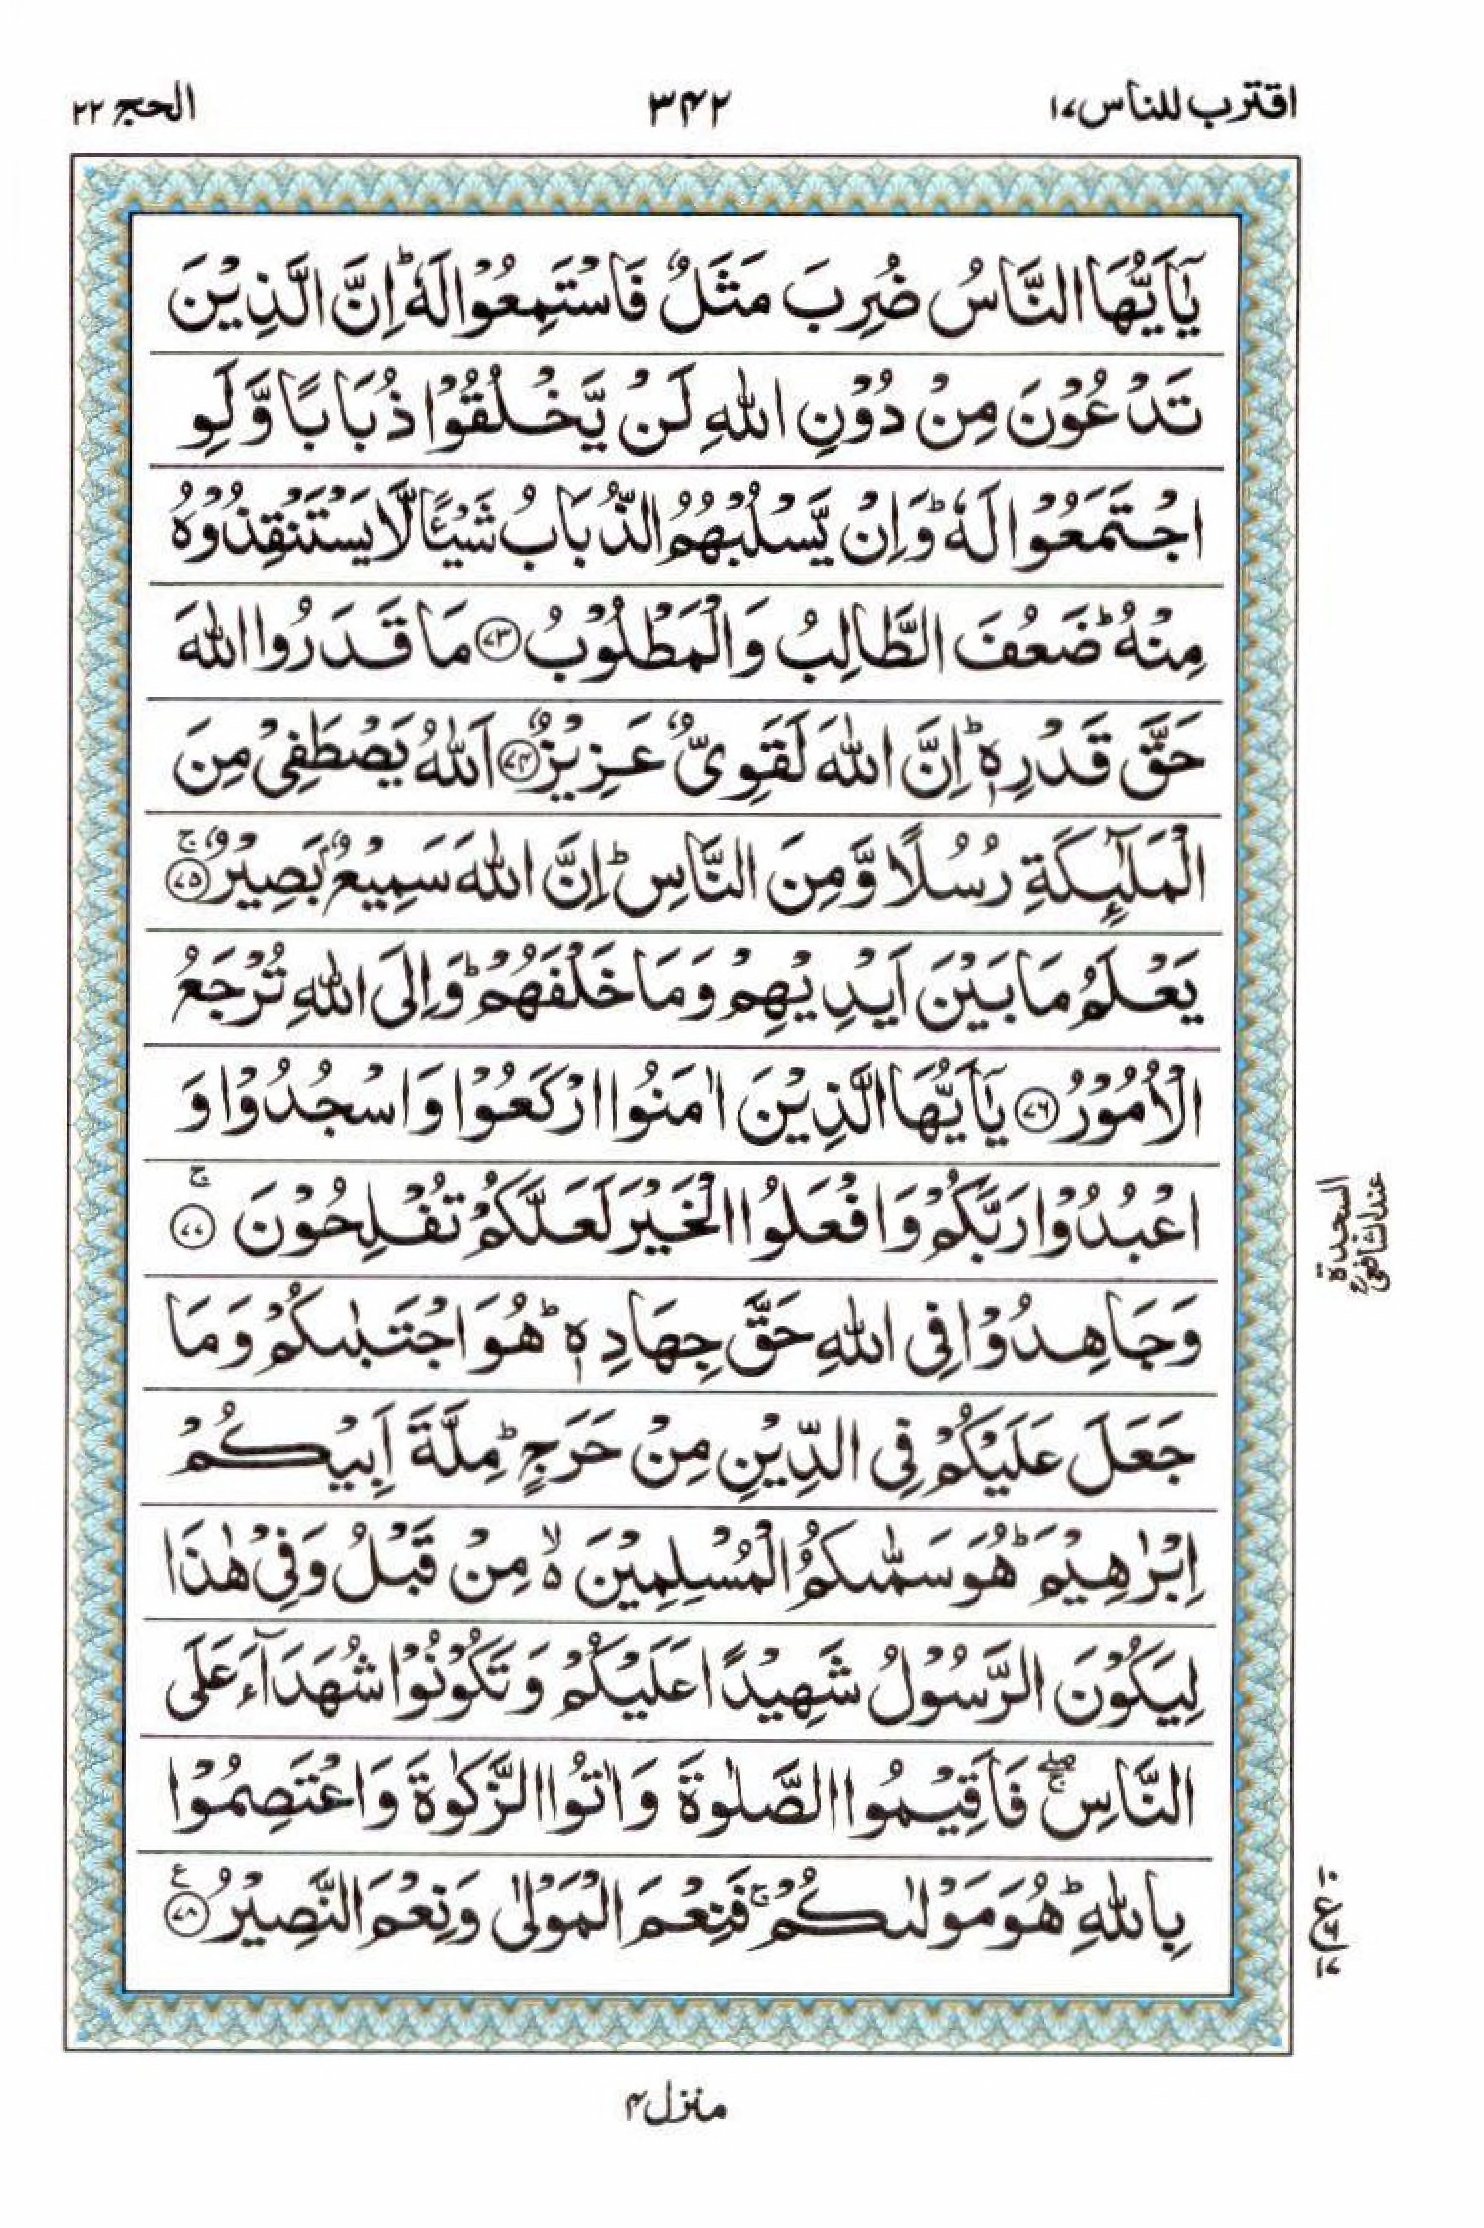 اقترب للناس ۱۷
۳۴۲
الحج ۲۲
يٰۤاَيُّهَا النَّاسُ ضُرِبَ مَثَلٌ فَاسْتَمِعُوْا لَهٗ ؕ اِنَّ الَّذِيْنَ
تَدْعُوْنَ مِنْ دُوْنِ اللّٰهِ لَنْ يَّخْلُقُوْا ذُبَابًا وَّلَوِ
اجْتَمَعُوْا لَهٗ ؕ وَاِنْ يَّسْلُبْهُمُ الذُّبَابُ شَيْـًٔا لَّا يَسْتَنْقِذُوْهُ
مِنْهُ ؕ ضَعُفَ الطَّالِبُ وَالْمَطْلُوْبُ ﴿۷۳﴾ مَا قَدَرُوا اللّٰهَ
حَقَّ قَدْرِهٖ ؕ اِنَّ اللّٰهَ لَقَوِىٌّ عَزِيْزٌ ﴿۷۴﴾ اَللّٰهُ يَصْطَفِىْ مِنَ
الْمَلٰٓٮِٕكَةِ رُسُلًا وَّمِنَ النَّاسِ ؕ اِنَّ اللّٰهَ سَمِيْعٌۢ بَصِيْرٌ ۚ ﴿۷۵﴾
يَعْلَمُ مَا بَيْنَ اَيْدِيْهِمْ وَمَا خَلْفَهُمْ ؕ وَاِلَى اللّٰهِ تُرْجَعُ
الْاُمُوْرُ ﴿۷۶﴾ يٰۤاَيُّهَا الَّذِيْنَ اٰمَنُوا ارْكَعُوْا وَاسْجُدُوْا وَ
اعْبُدُوْا رَبَّكُمْ وَافْعَلُوا الْخَيْرَ لَعَلَّكُمْ تُفْلِحُوْنَ ۚ ﴿۷۷﴾
السجدة
عند الشافعیؒ
وَجَاهِدُوْا فِى اللّٰهِ حَقَّ جِهَادِهٖ ؕ هُوَ اجْتَبٰٮكُمْ وَمَا
جَعَلَ عَلَيْكُمْ فِى الدِّيْنِ مِنْ حَرَجٍ ؕ مِلَّةَ اَبِيْكُمْ
اِبْرٰهِيْمَ ؕ هُوَ سَمّٰٮكُمُ الْمُسْلِمِيْنَ ۙ ۬ مِنْ قَبْلُ وَفِىْ هٰذَا
لِيَكُوْنَ الرَّسُوْلُ شَهِيْدًا عَلَيْكُمْ وَتَكُوْنُوْا شُهَدَآءَ عَلَى
النَّاسِ ۖۚ فَاَقِيْمُوا الصَّلٰوةَ وَاٰتُوا الزَّكٰوةَ وَاعْتَصِمُوْا
بِاللّٰهِ ؕ هُوَ مَوْلٰٮكُمْ ۚ فَنِعْمَ الْمَوْلٰى وَنِعْمَ النَّصِيْرُ ﴿۷۸﴾ ع
۱۰
ع
۶
۱۷
منزل ۴